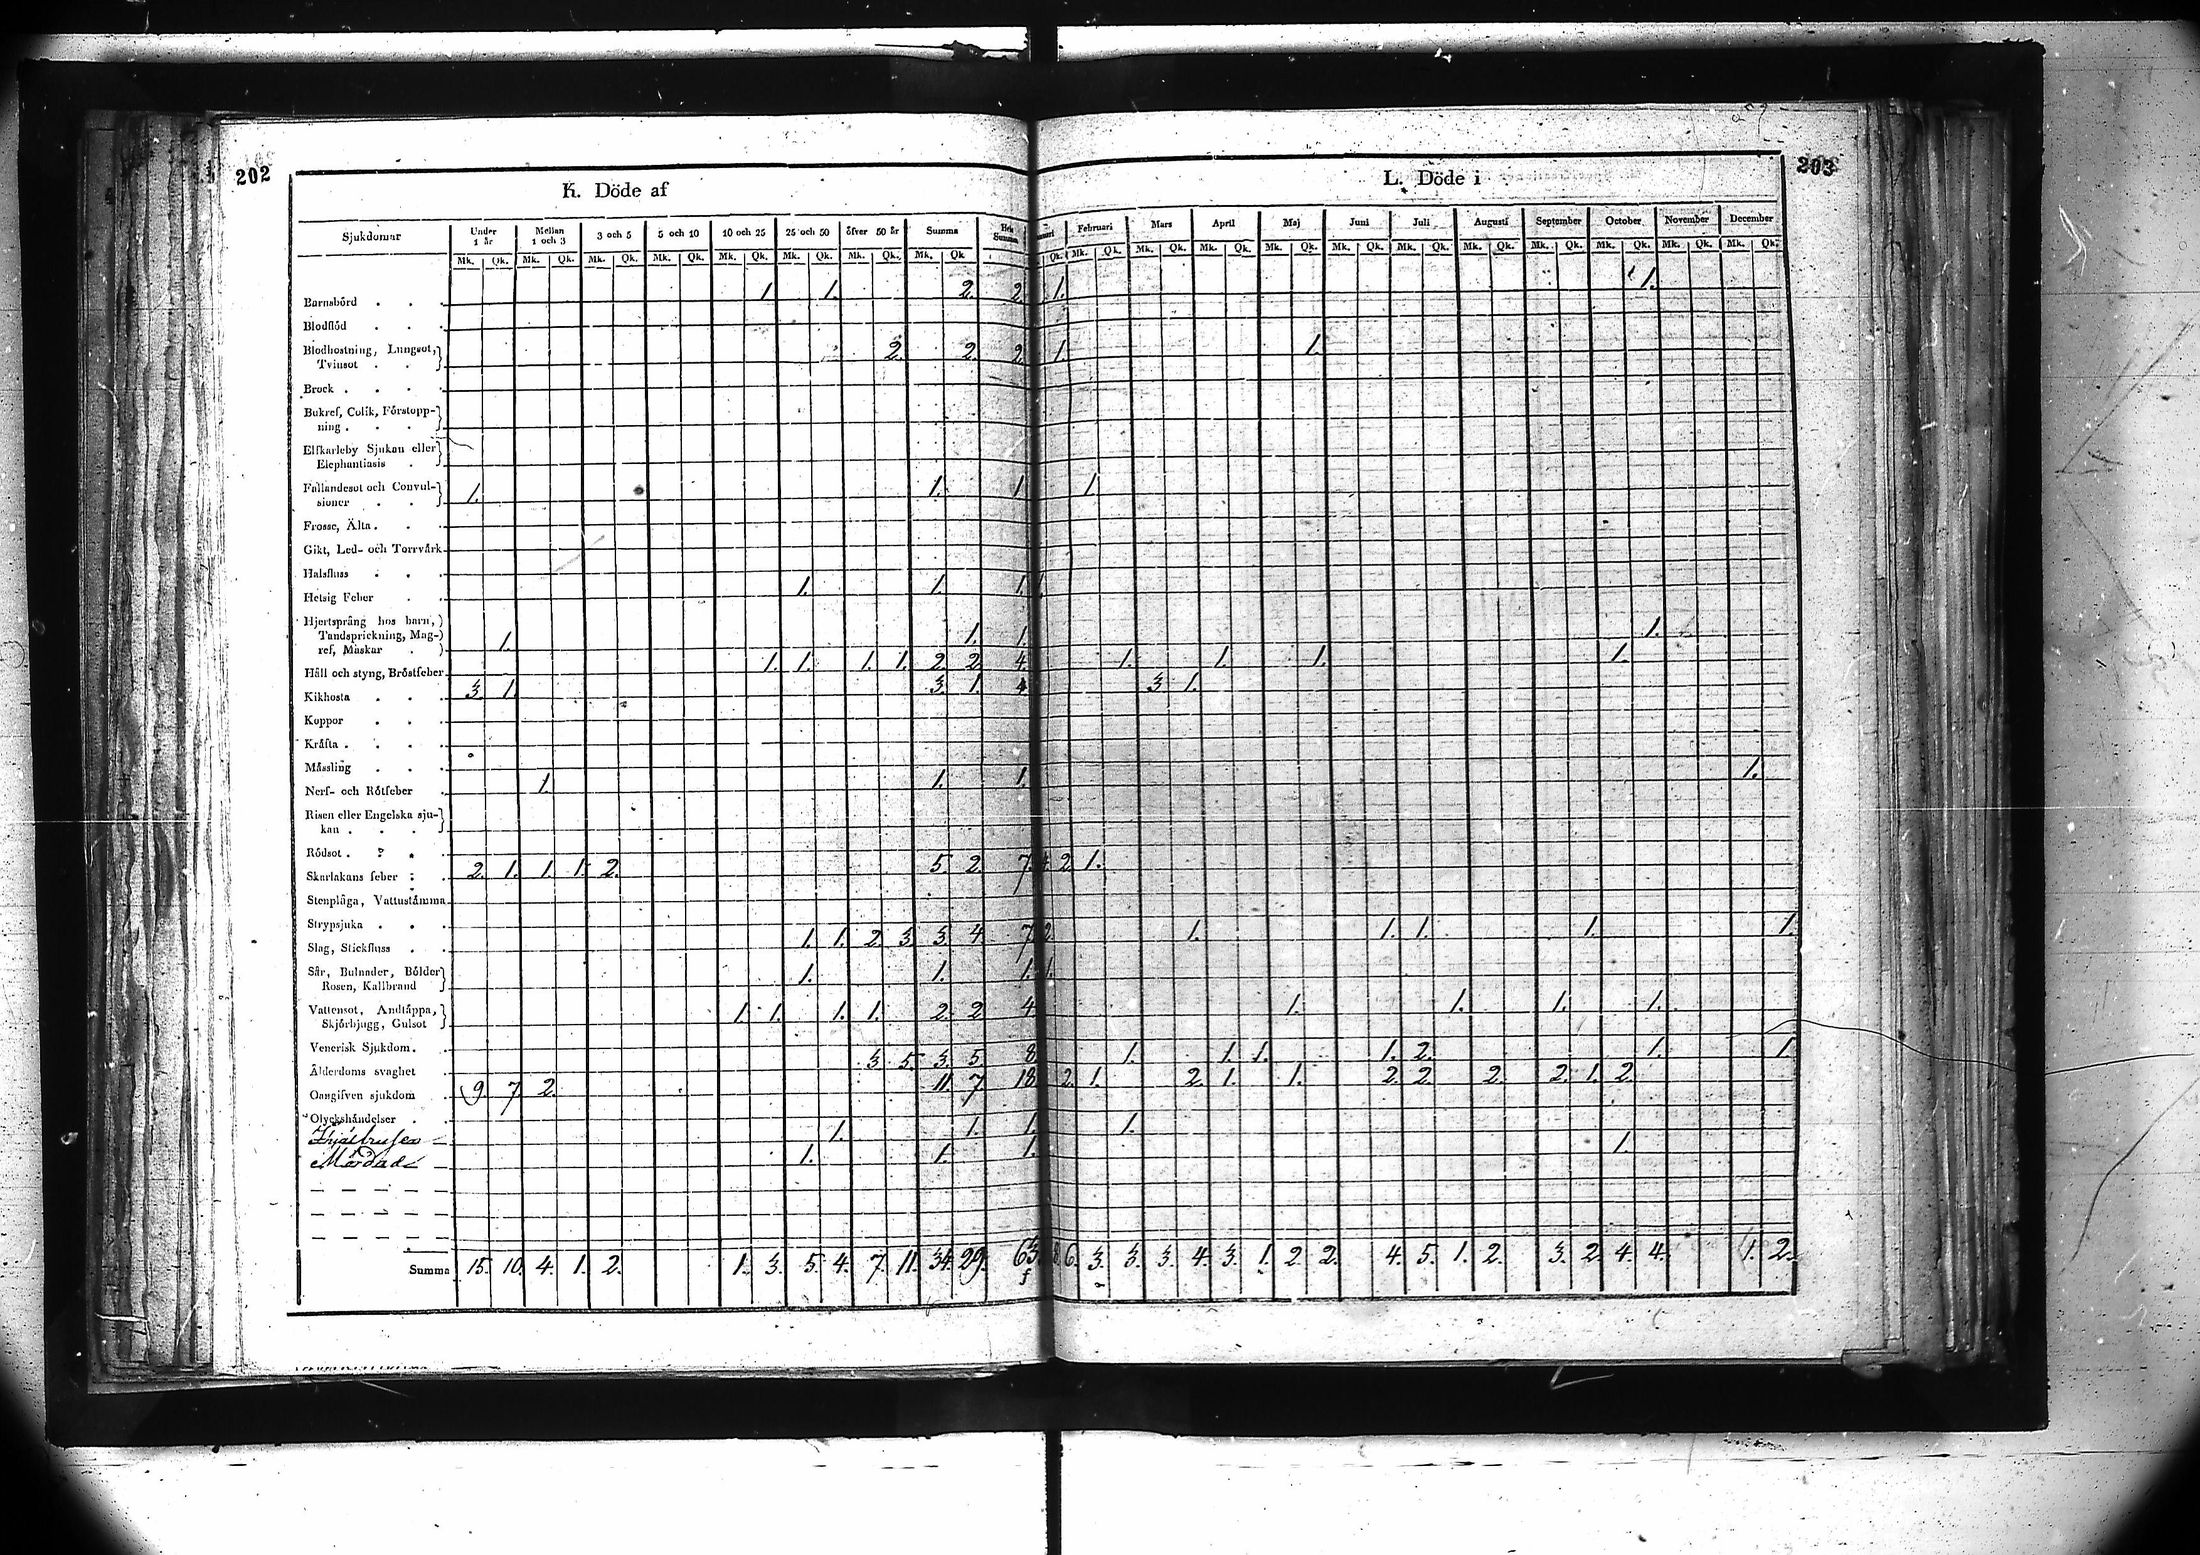 202
K. Döde af
Sjukdomar Under 1 år Mellan 1 och 3 3 och 5 5 och 10 10 och 25 25 och 50 öfver 50 år Summa Hela Summa
Mk. Qk. Mk. Qk. Mk. Qk. Mk. Qk. Mk. Qk. Mk. Qk. Mk. Qk. Mk. Qk.
Barnsbörd . . . 1. 1. 2. 2.
Blodflöd . . .
Blodhostning, Lungsot,
Tvinsot . . 2. 2. 2.
Brock . . . .
Bukref, Colik, Förstopp-
ning . . .
Elfkarleby Sjukan eller
Elephantiasis .
Fallandesot och Convul-
sioner . . 1. 1. 1
Frosse, Älta . . .
Gikt, Led- och Torrvärk
Halsfluss . . .
Hetsig Feber . . 1. 1. 1.
Hjertsprång hos barn,
Tandsprickning, Mag-
ref, Maskar . 1. 1. 1.
Håll och styng, Bröstfeber 1. 1. 1. 1. 2. 2. 4.
Kikhosta . . . 3. 1. 3. 1. 4
Koppor . . .
Kräfta . . . .
Mässling . . .
Nerf- och Rötfeber . 1. 1. 1.
Risen eller Engelska sju-
kan . . . .
Rödsot . . . .
Skarlakans feber . . 2. 1. 1. 1. 2. 5. 2. 7.
Stenplåga, Vattustämma
Strypsjuka . . .
Slag, Stickfluss . . 1. 1. 2. 3. 3. 4. 7.
Sår, Bulnader, Bölder
Rosen, Kallbrand 1. 1. 1.
Vattensot, Andtäppa,
Skjörbjugg, Gulsot 1. 1. 1. 1. 2. 2. 4.
Venerisk Sjukdom . .
Ålderdoms svaghet 3. 5. 3. 5. 8.
Oangifven sjukdom . 9. 7. 2. 11. 7. 18.
Olyckshändelser . .
1. 1. 1.
Mördad 1. 1. 1.
Summa 15. 10. 4. 1. 2. 1. 3. 5. 4. 7. 11. 34. 29. 63.
203
L. Döde i
Februari Mars April Maj Juni Juli Augusti September October November December
Qk. Mk. Qk. Mk. Qk. Mk. Qk. Mk. Qk. Mk. Qk. Mk. Qk. Mk. Qk. Mk. Qk. Mk. Qk. Mk. Qk. Mk. Qk.
1. 1.
1. 1.
1.
1.
1. 1. 1. 1.
3. 1.
1.
4. 2. 1.
2. 1. 1. 1. 1. 1.
1.
1. 1. 1. 1.
1. 1. 1. 1. 2. 1. 1.
2. 1. 2. 1. 1. 2. 2. 2. 2. 1. 2.
1.
1.
6. 3. 3. 3. 4. 3. 1. 2. 2. 4. 5. 1. 2. 3. 2. 4. 4. 1. 2.